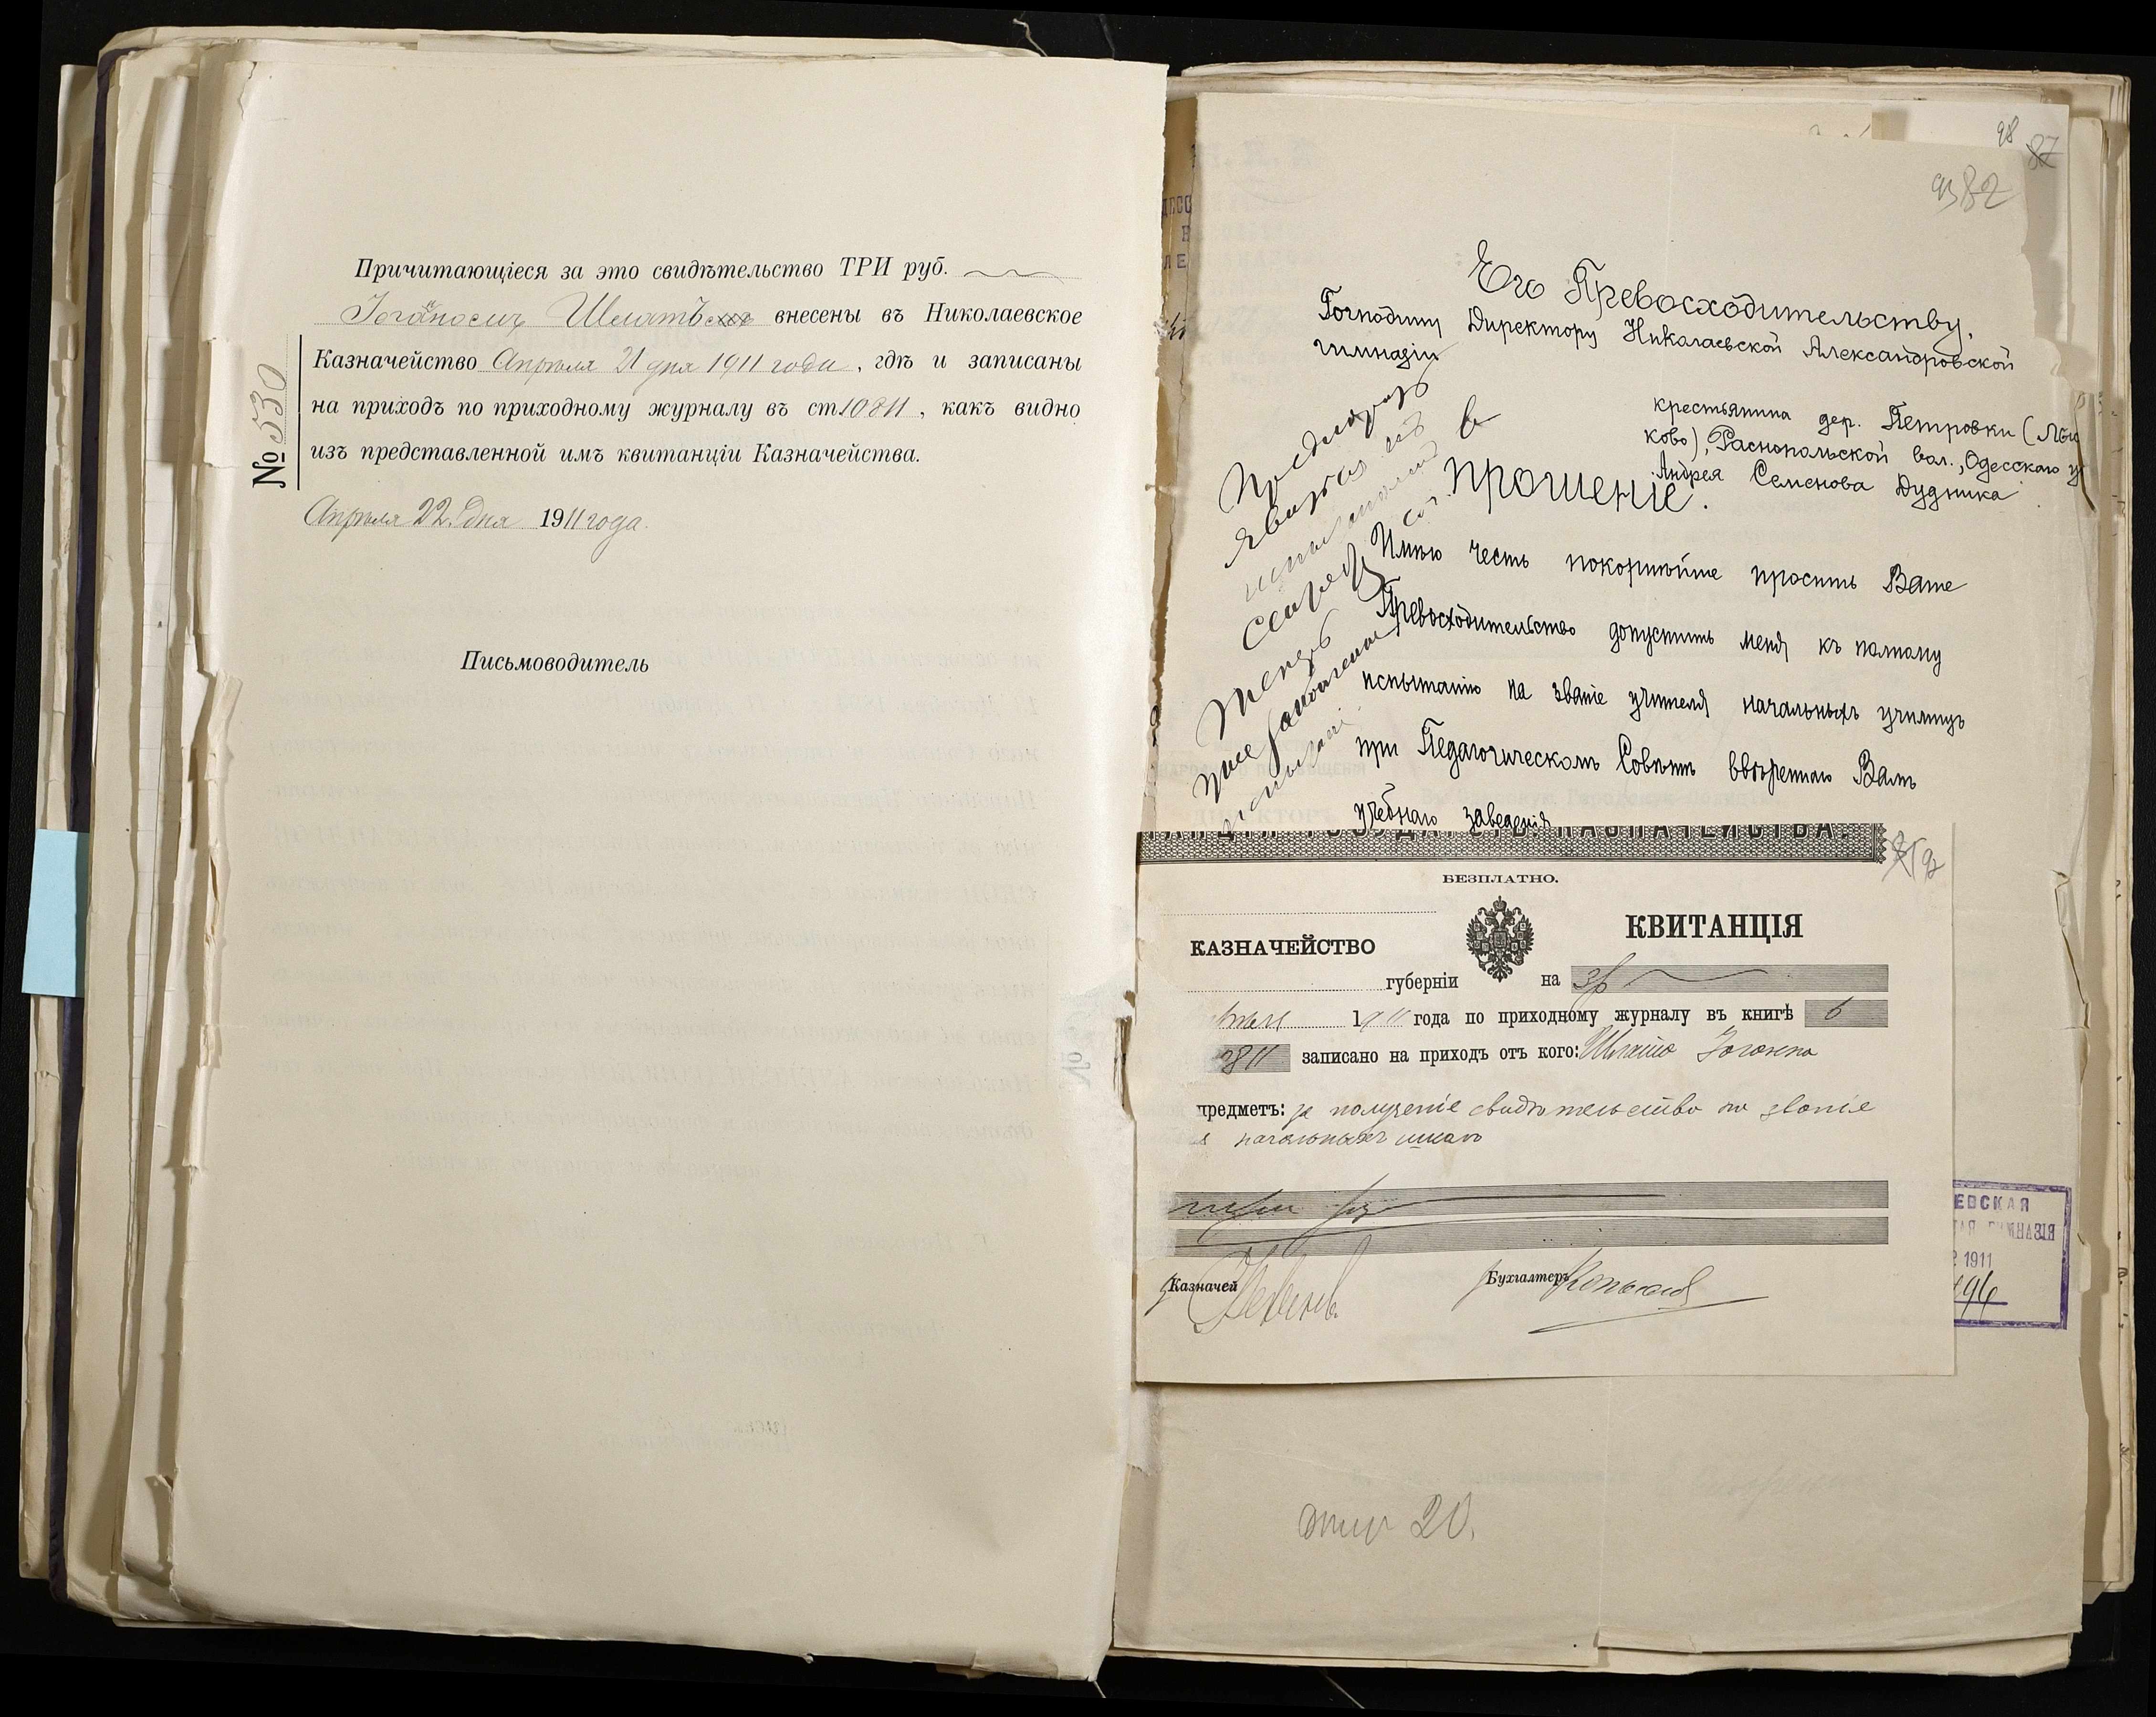 Причитающіеся за это свидѣтельство ТРИ руб.
Іоганномъ Шлатъ внесены въ Николаевское
Казначейство Апрѣля 21 дня 1911 года, гдѣ и записаны
на приходъ по приходному журналу въ ст 10811, какъ видно
изъ представленной имъ квитанціи Казначейства.
№ 530
Апрѣля 22 дня 1911 года.
Письмоводитель
98 87
93 82
Его Превосходительству,
Господину Директору Николаевской Александровской
гимназіи
крестьянина дер. Петровки
ково), Раснопольской вол., Одесскаго у
Андрея Семенова Дудника
Прошеніе.
Имѣю честь покорнѣйше просить Ваше
Превосходительство допустить меня къ полному
испытанію на званіе учителя начальныхъ училищъ
при Педагогическомъ Совѣтѣ ввѣреннаго Вамъ
учебнаго заведенія
БЕЗПЛАТНО.
КАЗНАЧЕЙСТВО
КВИТАНЦІЯ
губерніи
на 3р
1911 года по приходному журналу въ книгѣ 6
811 записано на приходъ отъ кого: Шлатъ Іоганна
предметъ: за полученіе свидѣтельство на званіе
начальныхъ школъ
три руб
Казначей
Бухгалтеръ
ЕВСКАЯ
ГИМНАЗІЯ
1911
494
20.